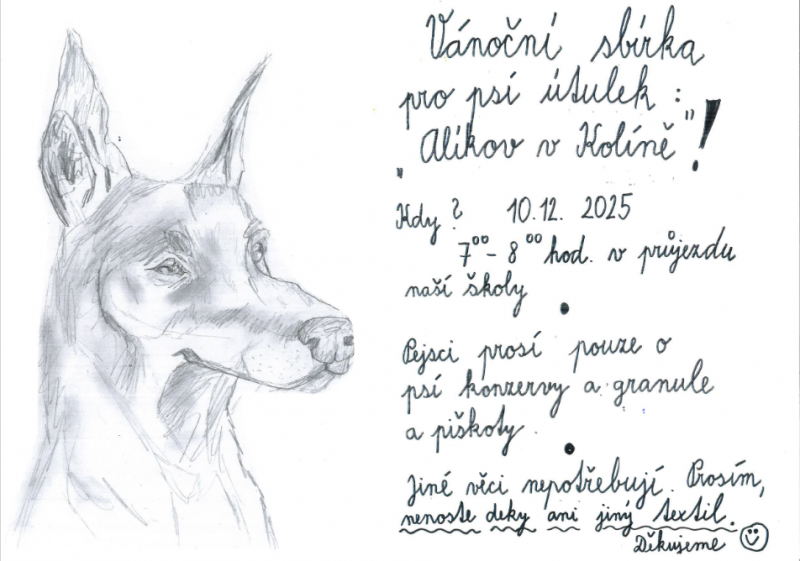 Vánoční sbírka
pro psí útulek :
„Alíkov v Kolíně"!
Kdy ? 10.12. 2025
7⁰⁰ - 8⁰⁰ hod. v průjezdu
naší školy
Pejsci prosí pouze o
psí konzervy a granule
a piškoty.
Jiné věci nepotřebují. Prosím,
nenoste deky ani jiný textil.
Děkujeme